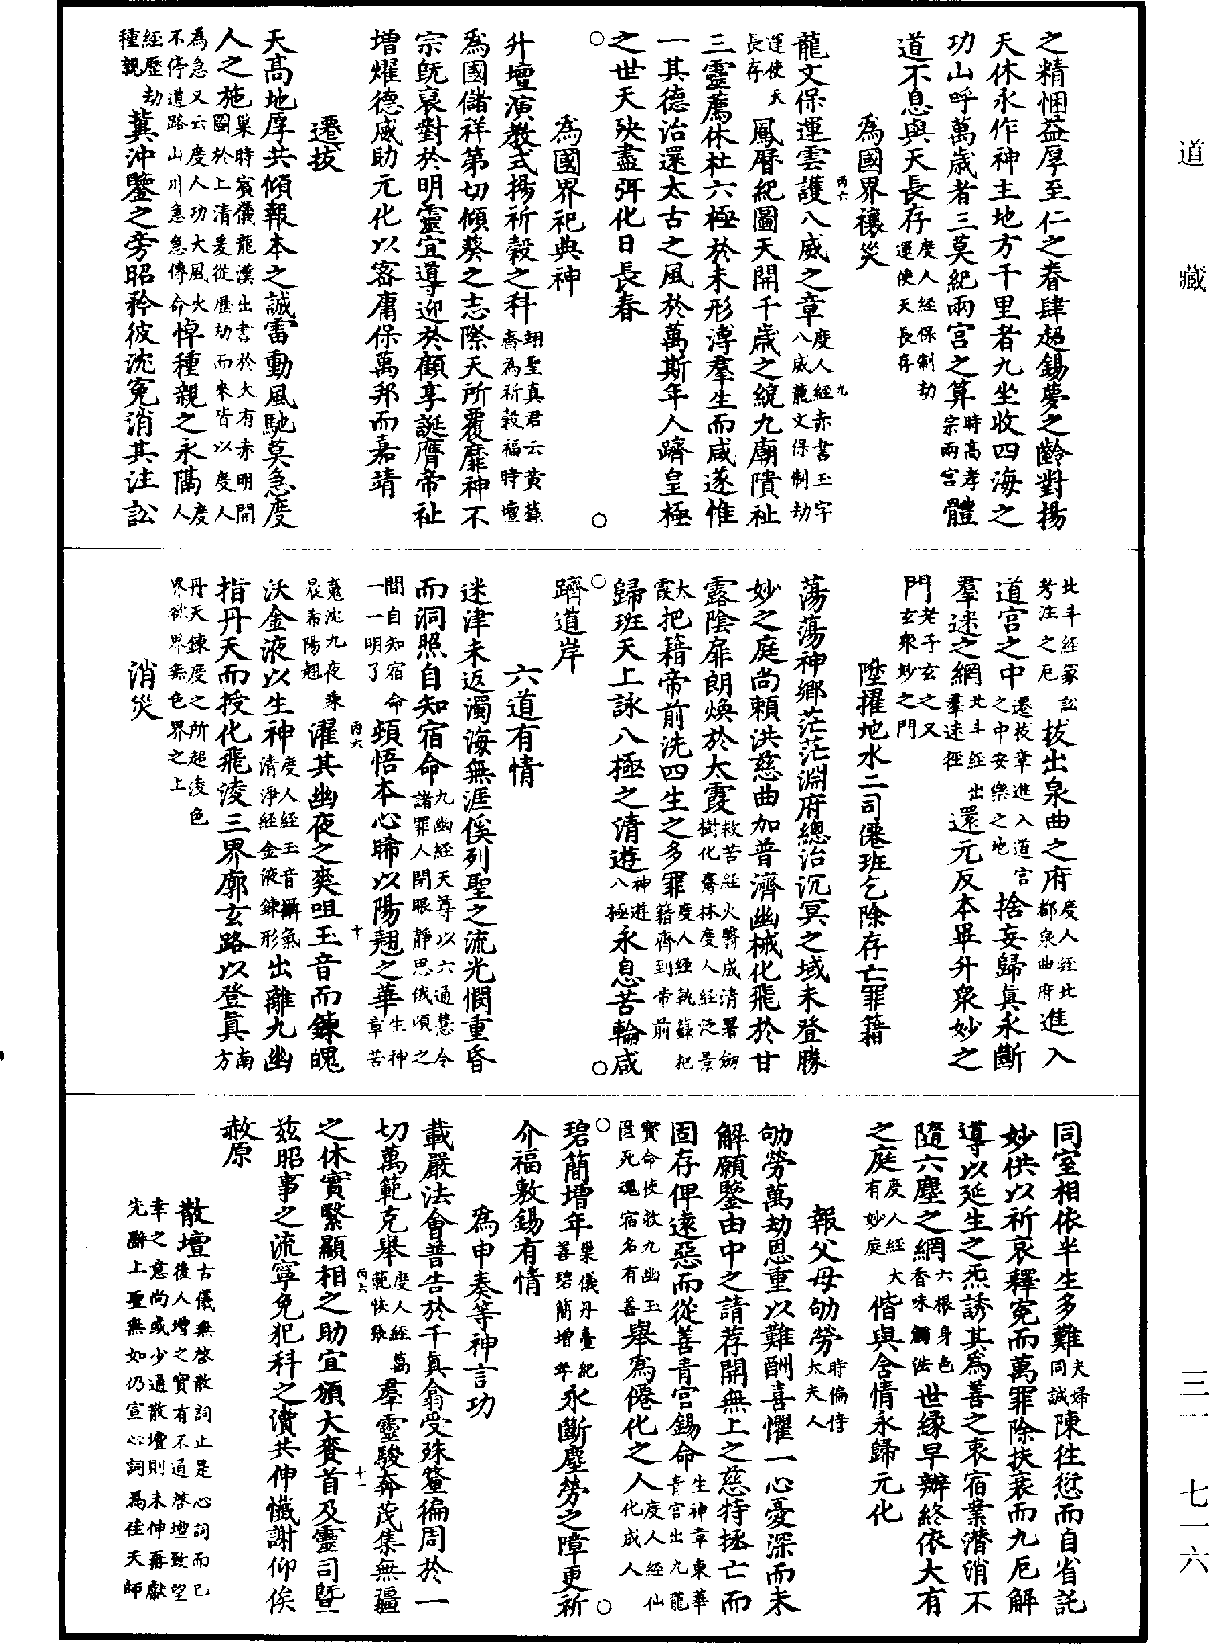 道藏
之精悃益厚至仁之眷肆超錫夢之齡對揚
天休永作神主地方千里者九坐收四海之
功山呼萬歲者三莫紀兩宮之算時高孝宗兩宮體
道不息與天長存度人經保制劫運使天長存
為國界禳災
龍文保運雲護八威之章度人經赤書玉字八威龍文保制劫
運使天長存鳳曆紀圖天開千歲之統九廟隤祉
三靈薦休杜六極於未形溥羣生而咸遂惟
一其德治還太古之風於萬斯年人躋皇極
之世天殃盡弭化日長春
為國界祀典神
升壇演教式揚祈穀之科翊聖真君云黃籙齋為祈穀福時壇
為國儲祥第切傾葵之志際天所覆靡神不
宗旣哀對於明靈宜導迎於顧享誕膺帝祉
增燿德威助元化以客庸保萬邦而嘉靖
遷拔
天高地厚共傾報本之誠雷動風馳莫急度
人之施巢時賓儀龍漢出書於大有赤明開圖於上清爰從歷劫而來皆以度人
為急又云度人功大風火不停道路山川急急傳命悼種親之永隔人度
經歷劫種親冀沖鑒之旁昭矜彼沈冤消其注訟
北斗經冢訟考注之厄拔出泉曲之府度人經北都泉曲府進入
道宮之中遷拔章進入道宮之中安樂之地捨妄歸眞永斷
羣迷之網北斗經出羣迷徑還元反本畢升衆妙之
門老子玄之又玄衆妙之門
陞擢地水二司僊班乞除存亡罪籍
蕩蕩神鄉茫茫淵府總治沉冥之域未登勝
妙之庭尚賴洪慈曲加普濟幽械化飛於甘
露陰扉朗煥於大霞救苦經火醫成清暑劒樹化騫林度人經泛景
太霞把籍帝前洗四生之多罪度人經執籙把籍齊到帝前
歸班天上詠八極之清遊神遊八極永息苦輪咸
躋道岸
六道有情
迷津未返濁海無涯傒列聖之流光憫重昏
而洞照自知宿命九幽經天尊以六通慧令諸罪人開眼靜思俄頃之
間自知宿命一一明了頓悟本心晞以陽翹之華生神章苦
魂沈九夜乘晨希陽翹濯其幽夜之爽咀玉音而鍊魄
沃金液以生神度人經玉音攝氣清淨經金液鍊形出離九幽
指丹天而授化飛淩三界廓玄路以登眞南方
丹天鍊度之所超淩色界欲界無色界之上
消災
同室相依半生多難夫婦同誠陳往愆而自省託
妙供以祈哀釋冤而萬罪除扶衰而九厄解
導以延生之炁誘其為善之衷宿業潛消不
隨六塵之網六根身色香味觸法世緣早辦終依大有
之庭度人經大有妙庭偕與含情永歸元化
報父母劬勞時倫侍太夫人
劬勞萬劫恩重以難酬喜懼一心憂深而未
解願鑒由中之請荐開無上之慈特拯亡而
固存俾遠惡而從善青宮錫命生神章東華青宮出九龍
寶命使救九幽玉匣死魂宿名有善舉為僊化之人度人經仙化成人
碧簡增年巢儀丹臺紀善碧簡增年永斷塵勞之障更祈
介福敷錫有情
為申奏等神言功
載嚴法會普告於千眞翕受殊釐徧周於一
切萬範克舉度人經萬範恢張羣靈駿奔茂集無疆
之休實繄顯相之助宜頒大賚首及靈司曁
茲昭事之流寧免犯科之瀆共伸懺謝仰俟
赦原
散壇古儀無啓散詞止是心詞而已後人增之實有不通啓壇致望
幸之意尚或少通散壇則未伸再獻先辭上聖無如仍宣心詞為佳天師
三一　七一六